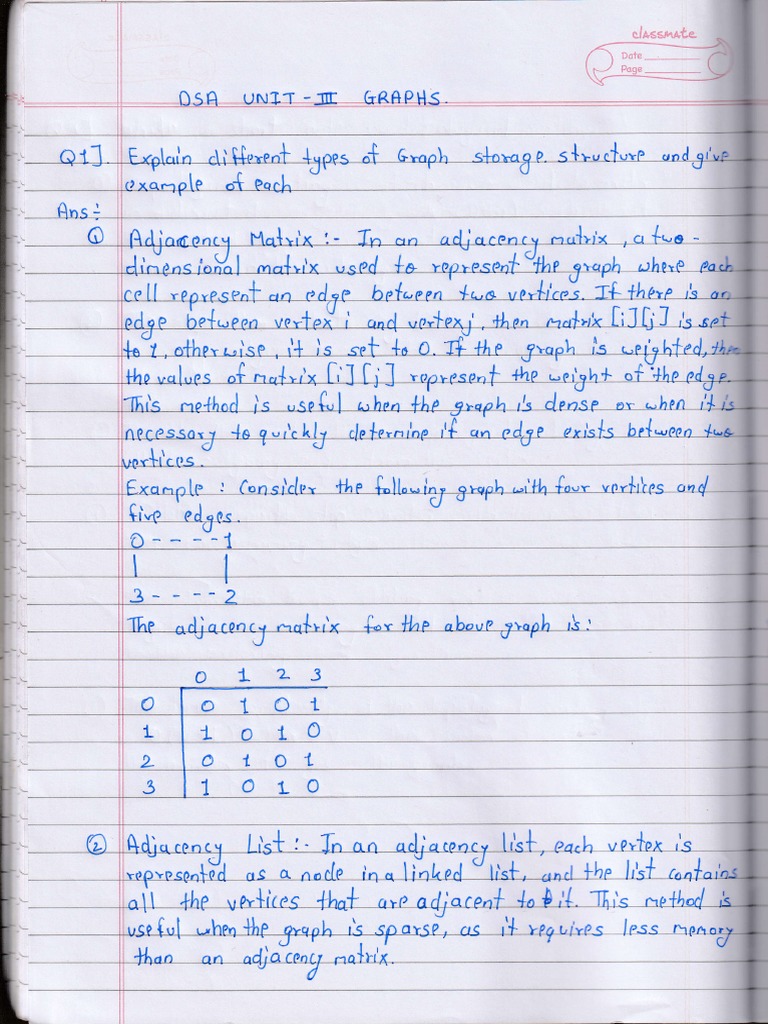 classmate
Date
Page
DSA UNIT-III GRAPHS.
Q1]. Explain different types of Graph storage structure and give
example of each
Ans:-
① Adjacency Matrix :- In an adjacency matrix, a two-
dimensional matrix used to represent the graph where each
cell represent an edge between two vertices. If there is an
edge between vertex i and vertex j, then matrix [i][j] is set
to 1, otherwise, it is set to 0. If the graph is weighted, then
the values of matrix [i][j] represent the weight of the edge.
This method is useful when the graph is dense or when it is
necessary to quickly determine if an edge exists between two
vertices.
Example : Consider the following graph with four vertices and
five edges.
0----1
| |
3----2
The adjacency matrix for the above graph is:
0 1 2 3
0 0 1 0 1
1 1 0 1 0
2 0 1 0 1
3 1 0 1 0
② Adjacency List :- In an adjacency list, each vertex is
represented as a node in a linked list, and the list contains
all the vertices that are adjacent to it. This method is
useful when the graph is sparse, as it requires less memory
than an adjacency matrix.